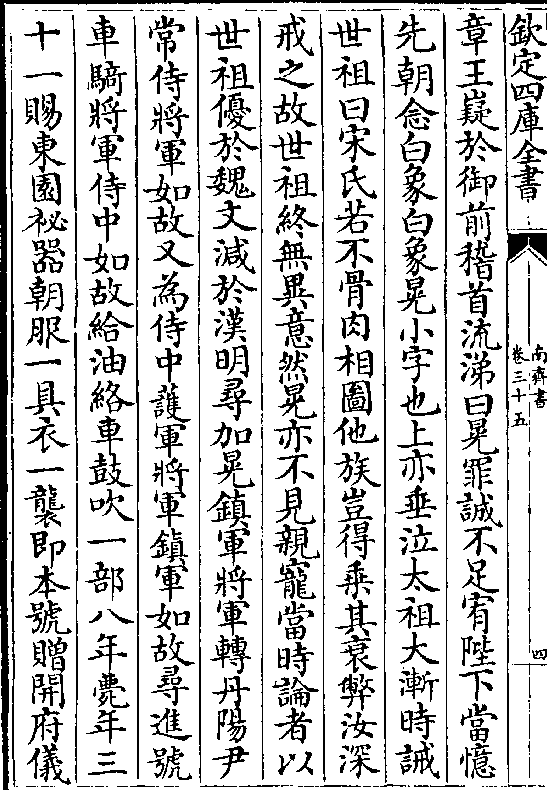 欽定四庫全書
南齊書
卷三十五
四
章王嶷於御前稽首流涕曰晃罪誠不足宥陛下當憶
先朝念白象白象晃小字也上亦垂泣太祖大漸時誡
世祖曰宋氏若不骨肉相圖他族豈得乗其衰弊汝深
戒之故世祖終無異意然晃亦不見親寵當時論者以
世祖優於魏文減於漢明尋加晃鎮軍將軍轉丹陽尹
常侍將軍如故又為侍中護軍將軍鎮軍如故尋進號
車騎將軍侍中如故給油絡車鼓吹一部八年薨年三
十一賜東園祕器朝服一具衣一襲即本號贈開府儀